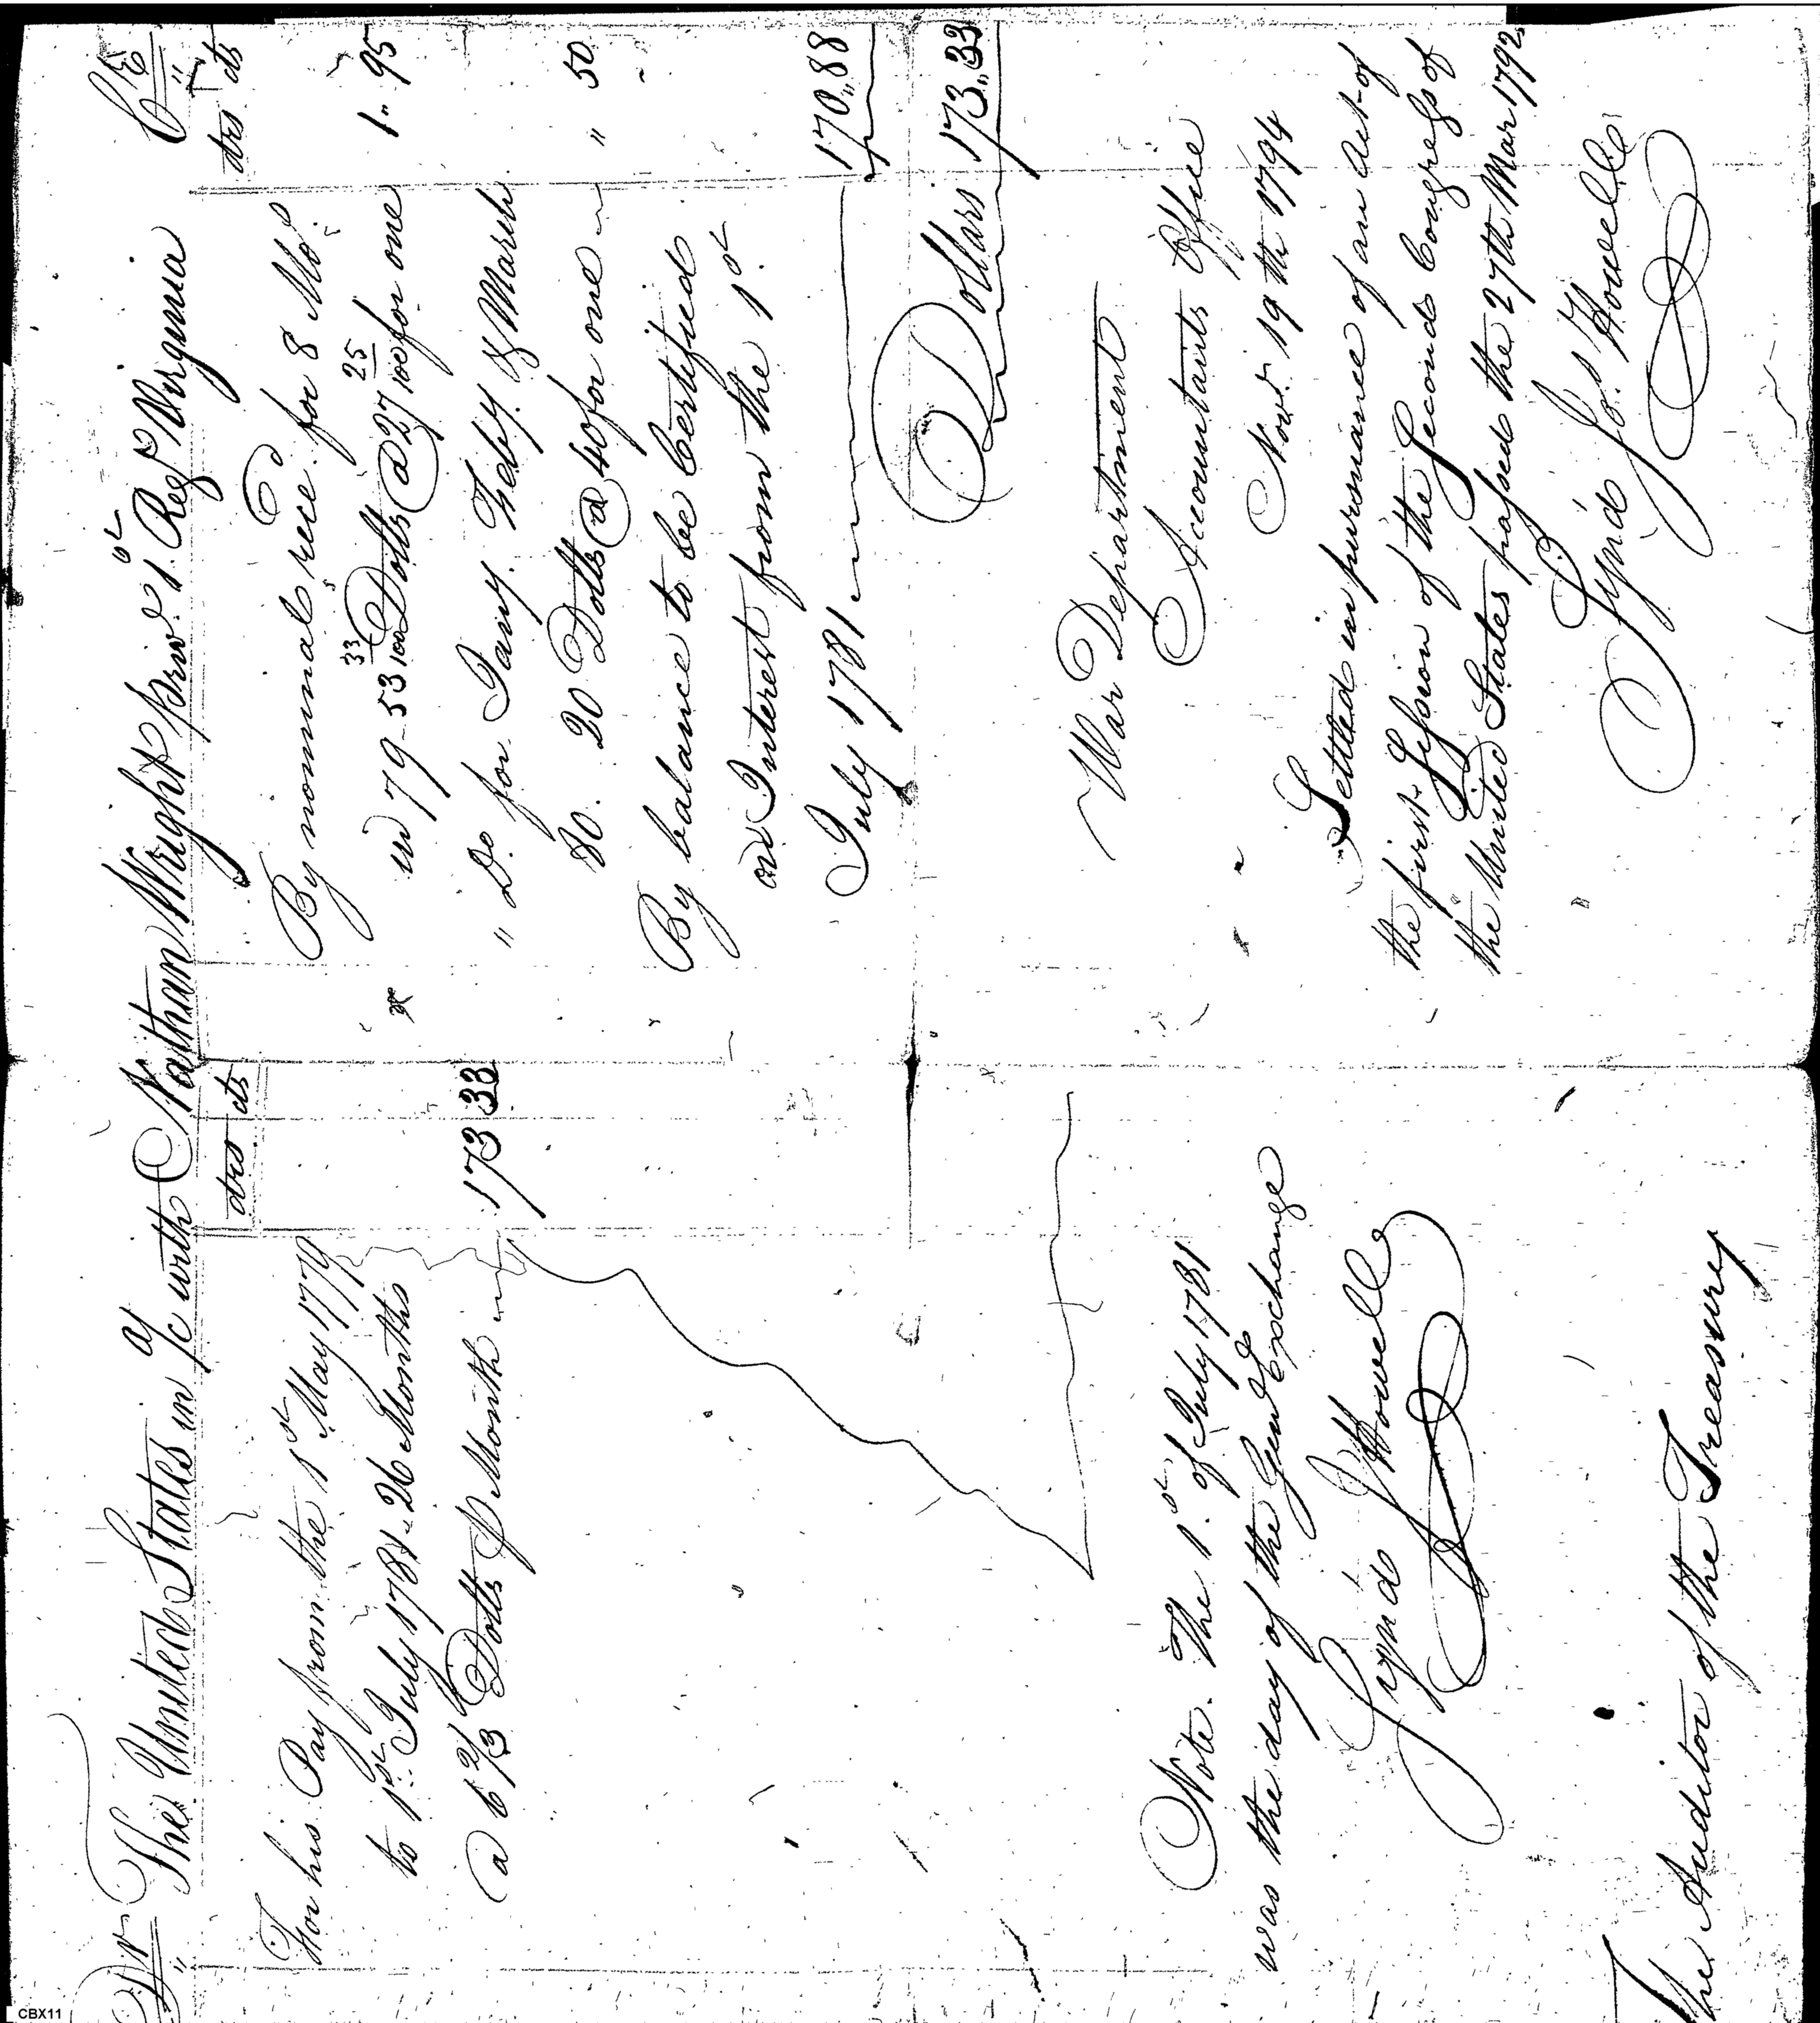 Dr The United States in a/c with Nathan Wright priv.t 1st Reg.t Virginia Cr
drs cts
For his Pay from the 1st May 1779
to 1st July 1781. 26 Months
@ 6 2/3 Dolls p Month 173 33
Note. The 1st of July 1781
was the day of the Gen.l Exchange
Sign'd J Howell
The Auditor of the Treasury
drs cts
By nominals rece.d for 8 Mo.s
in 79 - 53 33/100 Dolls @ 27 25/100 for one 1 " 95
" Do for Jany. Feby. & March
80. 20 Dolls @ 40 for one " 50
By balance to be Certified
on Interest from the 1st
July 1781 170 " 88
Dollars 173 " 33
War Department
Accountants Office
Nov.r 19th 1794
Settled in pursuance of an Act of
the first Session of the Second Congress of
the United States passed the 27th Mar 1792
Sign'd Jos. Howell
CBX11